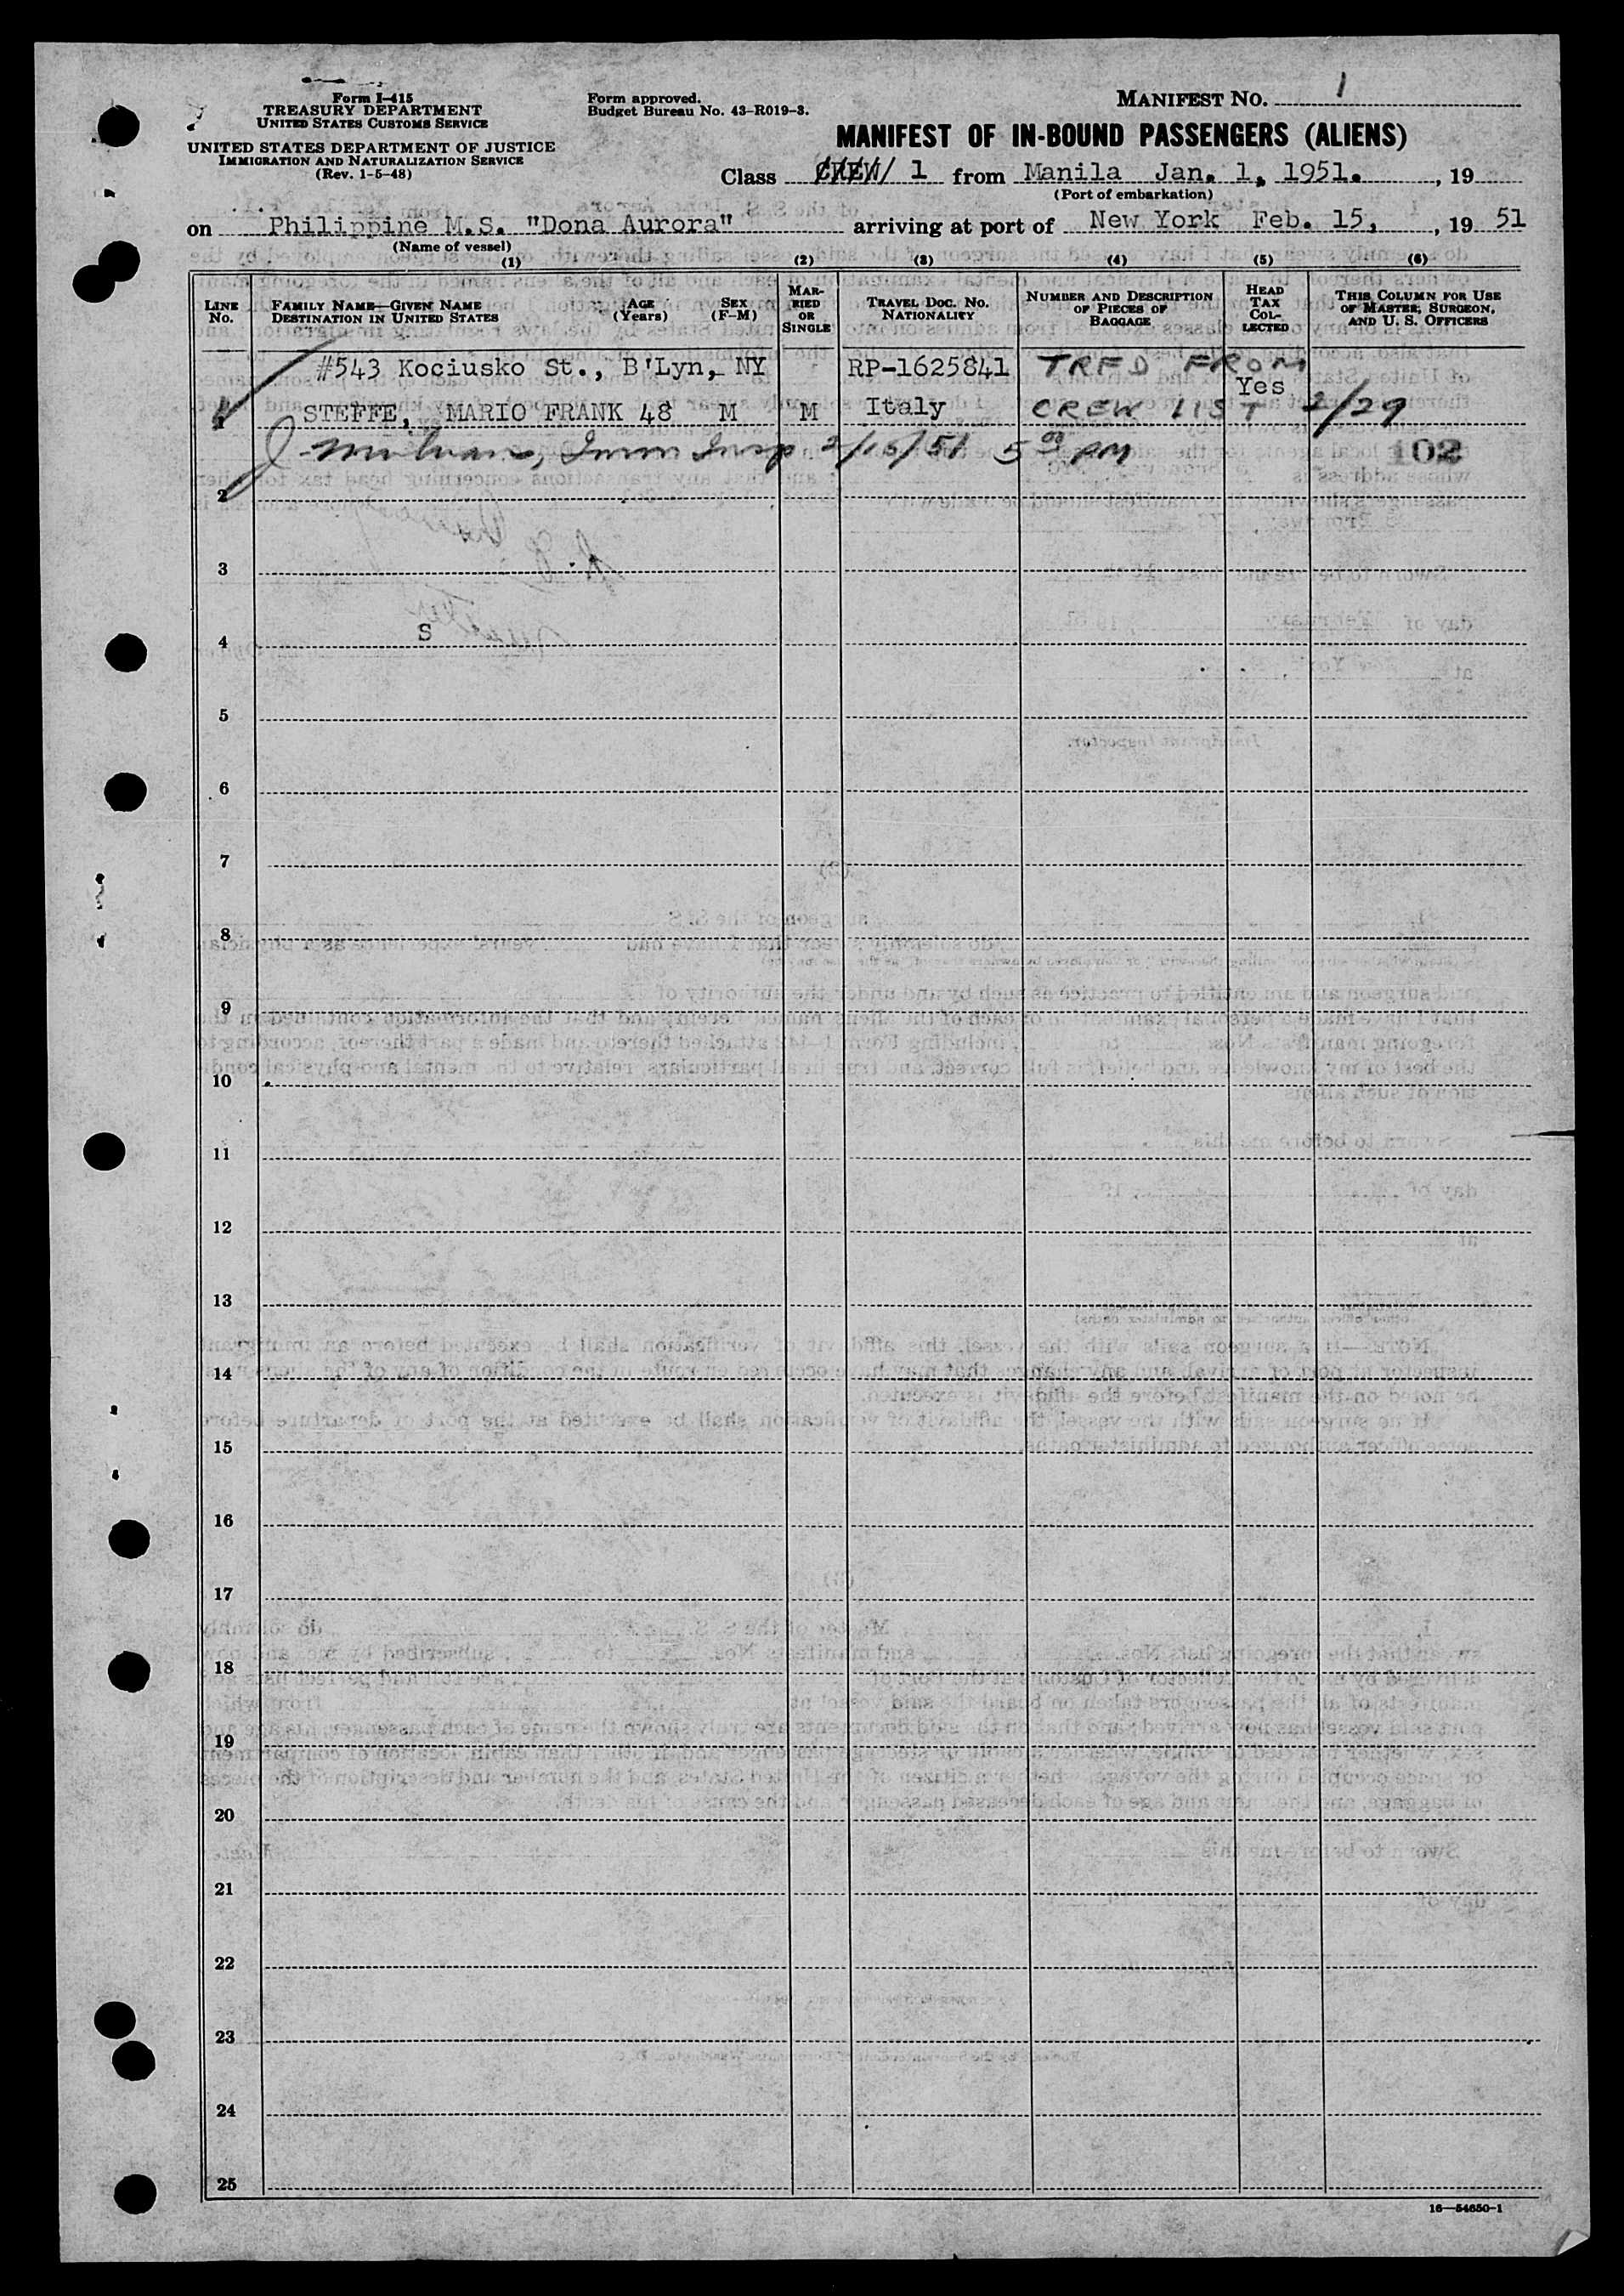 Form I-415
TREASURY DEPARTMENT
UNITED STATES CUSTOMS SERVICE
UNITED STATES DEPARTMENT OF JUSTICE
IMMIGRATION AND NATURALIZATION SERVICE
(Rev. 1-5-48)
Form approved.
Budget Bureau No. 43-R019-3.
MANIFEST NO. 1
MANIFEST OF IN-BOUND PASSENGERS (ALIENS)
Class CREW 1 from Manila Jan. 1, 1951. , 19
(Port of embarkation)
on Philippine M.S. "Dona Aurora" arriving at port of New York Feb. 15, , 19 51
(Name of vessel)
(1) (2) (3) (4) (5) (6)
LINE No.
FAMILY NAME—GIVEN NAME
DESTINATION IN UNITED STATES
AGE (Years)
SEX (F-M)
MARRIED OR SINGLE
TRAVEL DOC. NO.
NATIONALITY
NUMBER AND DESCRIPTION OF PIECES OF BAGGAGE
HEAD TAX COLLECTED
THIS COLUMN FOR USE OF MASTER, SURGEON, AND U. S. OFFICERS
#543 Kociusko St., B'Lyn, NY RP-1625841 TRFD FROM
Yes
STEFFE, MARIO FRANK 48 M M Italy CREW LIST 2/29
Imm Insp 2/15/51 5 00 PM 102
2
3
S
4
5
6
7
8
9
10
11
12
13
14
15
16
17
18
19
20
21
22
23
24
25
16—54650-1